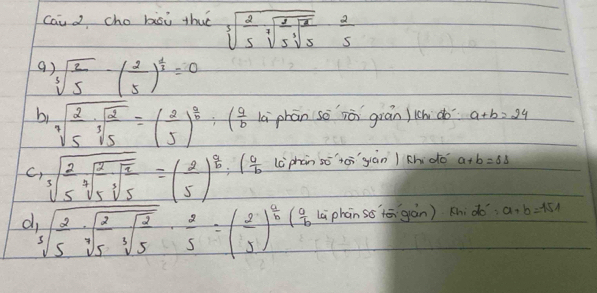 Câu 2. Cho biểu thức ⁵√(2/5 ⁷√(2/5 ³√(2/5))) 2/5
a) ³√(2/5) - (2/5)^(1/3) = 0
b, ⁷√(2/5 . ³√(2/5)) = (2/5)^(a/b) ; (a/b là phân số tối giản) khi đó a+b=24
c, ⁵√(2/5 ⁷√(2/5 ³√(2/5))) = (2/5)^(a/b) ; (a/b là phân số tối giản) khi đó a+b=88
d, ⁵√(2/5 . ⁷√(2/5 . ³√(2/5))) . 2/5 = (2/5)^(a/b) (a/b là phân số tối giản) khi đó : a+b=151